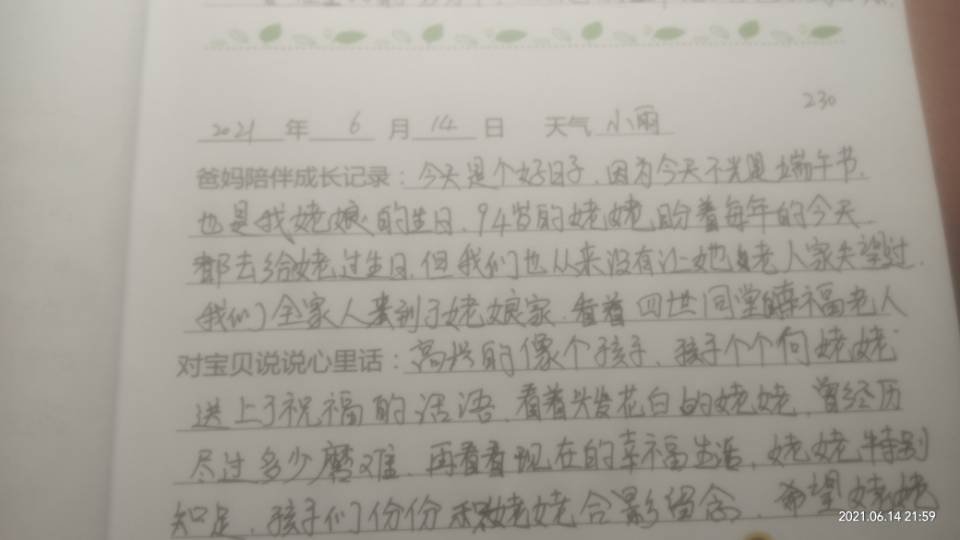 230
2021 年 6 月 14 日 天气 小雨
爸妈陪伴成长记录：今天是个好日子，因为今天不光是端午节，
也是我姥娘的生日，94岁的姥姥盼着每年的今天
都去给姥过生日，但我们也从来没有让她老人家失望过，
我们全家人来到了姥娘家，看着四世同堂幸福老人
对宝贝说说心里话：高兴的像个孩子，孩子个个向姥姥
送上了祝福的话语，看着头发花白的姥姥，曾经历
尽过多少磨难，再看看现在的幸福生活，姥姥特别
知足，孩子们份份和姥姥合影留念，希望姥姥
2021.06.14 21:59